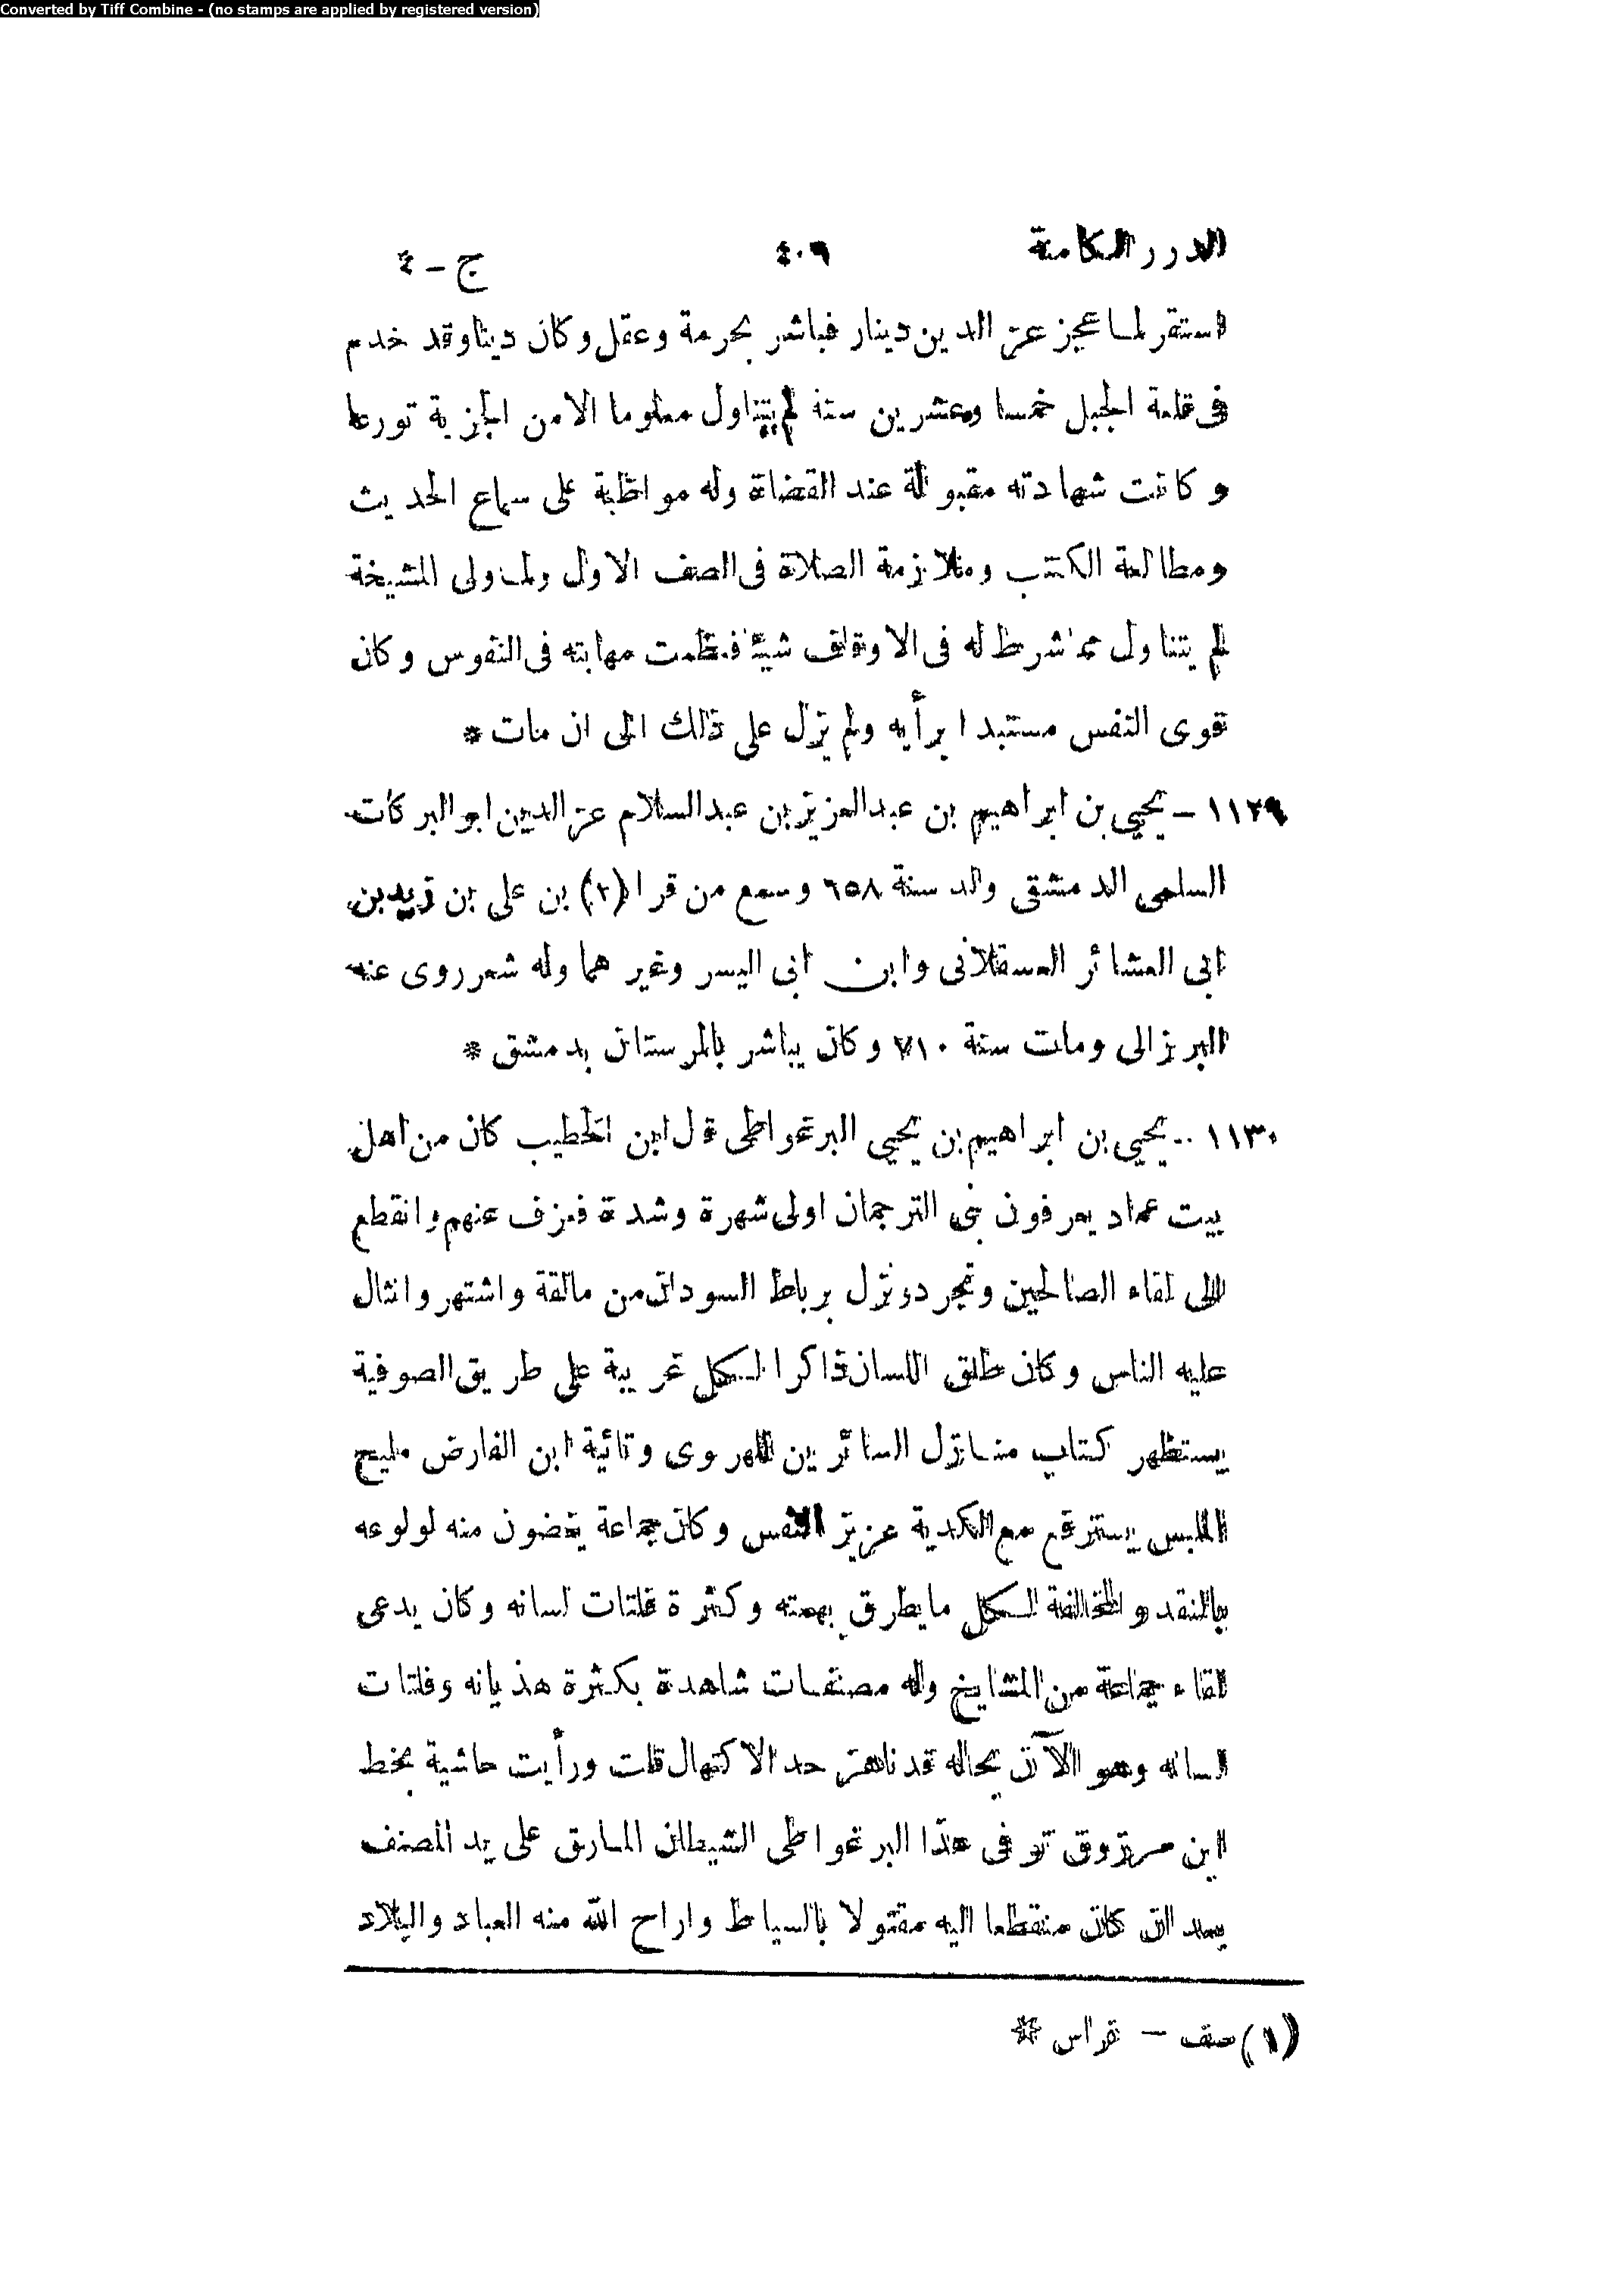 Converted by Tiff Combine - (no stamps are applied by registered version)
الدرر الكامنة ٤٠٩ ج – ٤
استقر لما عجز عز الدين دينار فباشر بحرمة وعقل وكان دينا وقد خدم
فى قلعة الجبل خمسا وعشرين سنة لم يتناول معلوما الا من الجزية تورعا
وكانت شهادته مقبولة عند القضاة وله مواظبة على سماع الحديث
ومطالعة الكتب وملازمة الصلاة فى الصف الاول ولما ولى المشيخة
لم يتناول مما شرط له فى الاوقاف شيئا فعظمت مهابته فى النفوس وكان
قوى النفس مستبدا برأيه ولم يزل على ذلك الى ان مات *
١١٢٩ – يحيى بن ابراهيم بن عبدالعزيز بن عبدالسلام عز الدين ابو البركات
السلمى الدمشقى ولد سنة ٦٥٨ وسمع من قرا (١) بن على بن زيد بن
ابى العشائر العسقلانى وابن ابى اليسر وغيرهما وله شعر روى عنه
البرزالى ومات سنة ٧١٠ وكان يباشر بالمرستان بدمشق *
١١٣٠ – يحيى بن ابراهيم بن يحيى البرغواطى قال ابن الخطيب كان من اهل
بيت عماد يعرفون ببنى الترجمان اولى شهرة وشدة فعزف عنهم وانقطع
الى لقاء الصالحين وتجرد ونزل برباط السودان من مالقة واشتهر وانثال
عليه الناس وكان طلق اللسان ذاكرا لكل غريبة على طريق الصوفية
يستظهر كتاب منازل السائرين للهروى وتائية ابن الفارض مليح
الملبس يسترقع مع الكدية عزيز النفس وكان جماعة يغضون منه لولوعه
بالنقد والمخالفة لكل ما يطرق بهمته وكثرة فلتات لسانه وكان يدعى
لقاء جماعة من المشايخ وله مصنفات شاهدة بكثرة هذيانه وفلتات
لسانه وهو الآن بحاله قد ناهز حد الاكتهال قلت ورأيت حاشية بخط
ابن مرزوق توفى هذا البرغواطى الشيطان المارق على يد المصنف
بعد ان كان منقطعا اليه مقتولا بالسياط واراح الله منه العباد والبلاد
(١) صف – قراس *